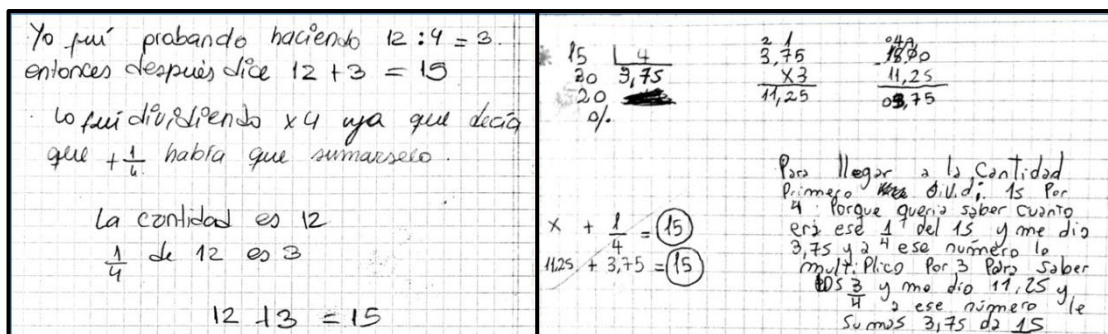 Yo fui probando haciendo 12 : 4 = 3
entonces después dice 12 + 3 = 15
Lo fui dividiendo x4 ya que decía
que + 1/4 había que sumarselo.
La cantidad es 12
1/4 de 12 es 3
12 + 3 = 15
15 | 4
30 3,75
20
0/.
2 1
3,75
x3
11,25
11,25
03,75
x + 1/4 = 15
11,25 + 3,75 = 15
Para llegar a la Cantidad
Primero dividi 15 Por
4 Porque queria saber cuanto
era ese 1/4 del 15 y me dio
3,75 y a ese número lo
multiplico Por 3 Para saber
los 3/4 y me dio 11,25 y
a ese número le
sumas 3,75 da 15